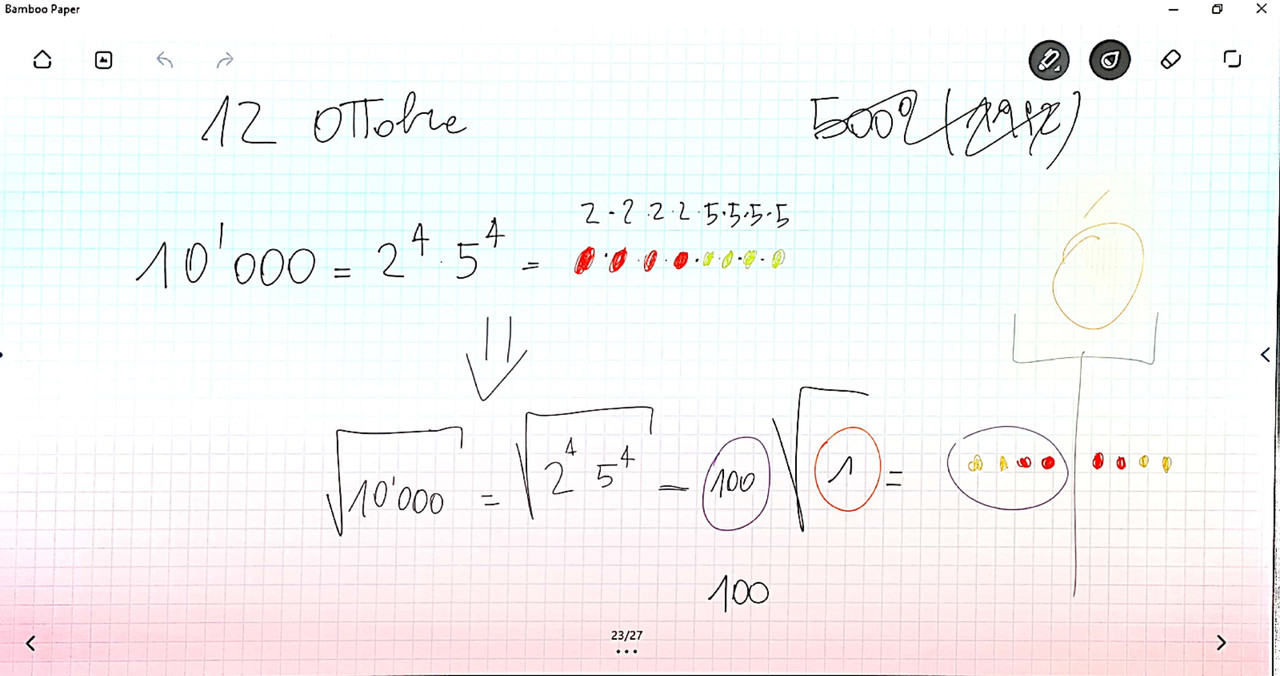 Bamboo Paper
12 ottobre
2·2·2·2·5·5·5·5
10'000 = 2⁴·5⁴ =
√10'000 = √2⁴ 5⁴ = 100 √1 =
100
23/27